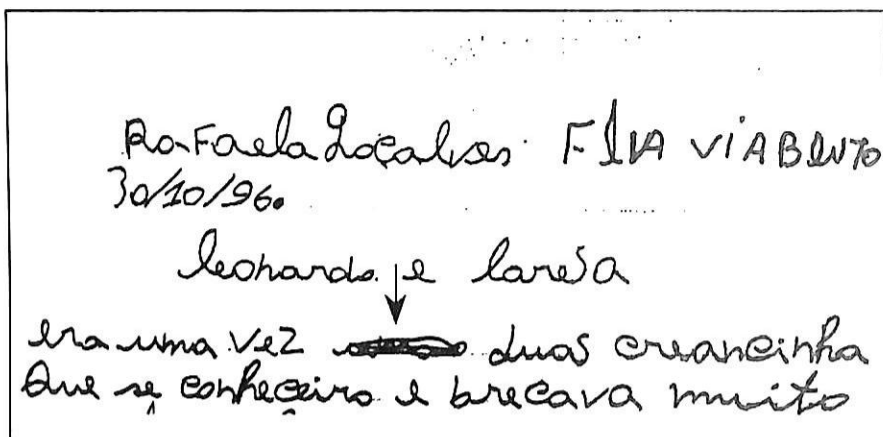 Rafaela Goçalves. FlVA ViABENTO
30/10/96.
leonardo e laresa
era uma vez duas creancinha
Que se conheceiro e brecava muito